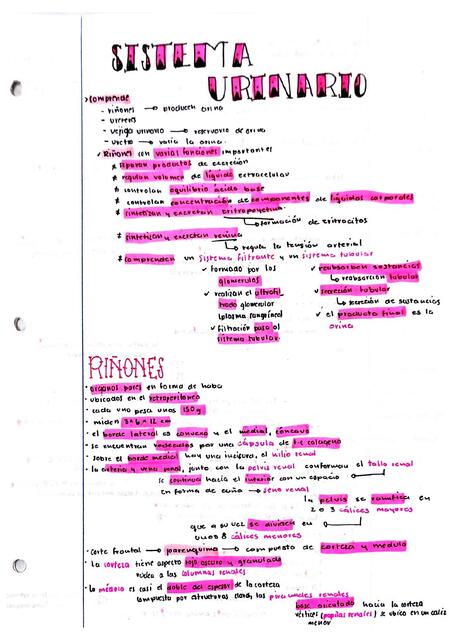 SISTEMA
URINARIO
> Comprende
- riñones → producen orina
- uréteres
- vejiga urinaria → reservorio de orina
- uretra → vacía la orina.
✓ Riñones con varias funciones importantes
* separan productos de excreción
* regulan volumen de líquido extracelular
* controlan equilibrio ácido base
* controlan concentración de componentes de líquidos corporales
* sintetizan y excretan eritropoyetina
↳ formación de eritrocitos
* sintetizan y excretan renina
↳ regula la tensión arterial
* comprenden un sistema filtrante y un sistema tubular
✓ formado por los glomérulos
✓ realizan el ultrafiltrado glomerular (plasma sanguíneo)
✓ filtración pasa al sistema tubular.
✓ reabsorben sustancias
↳ reabsorción tubular
✓ secreción tubular
↳ secreción de sustancias
✓ el producto final es la orina
RIÑONES
· órganos pares en forma de haba
· ubicados en el retroperitoneo
· cada uno pesa unos 150g
· miden 3 * 6 * 12 cm
· el borde lateral es convexo y el medial, cóncavo
· se encuentran rodeados por una cápsula de t.c colágeno
· sobre el borde medial hay una incisura, el hilio renal
· la arteria y vena renal, junto con la pelvis renal conforman el tallo renal
se continúa hacia el interior con un espacio
en forma de → seno renal
la pelvis se ramifica en
2 o 3 cálices mayores
que a su vez se dividen en
unos 8 cálices menores
· corte frontal → parénquima → compuesto de corteza y médula
· La corteza tiene aspecto rojo oscuro y granulado
rodea a las columnas renales
· La médula es casi el doble del espesor de la corteza
compuesto por estructuras las pirámides renales
base hacia la corteza
vértices (papilas renales) se ubica en un cáliz
menor